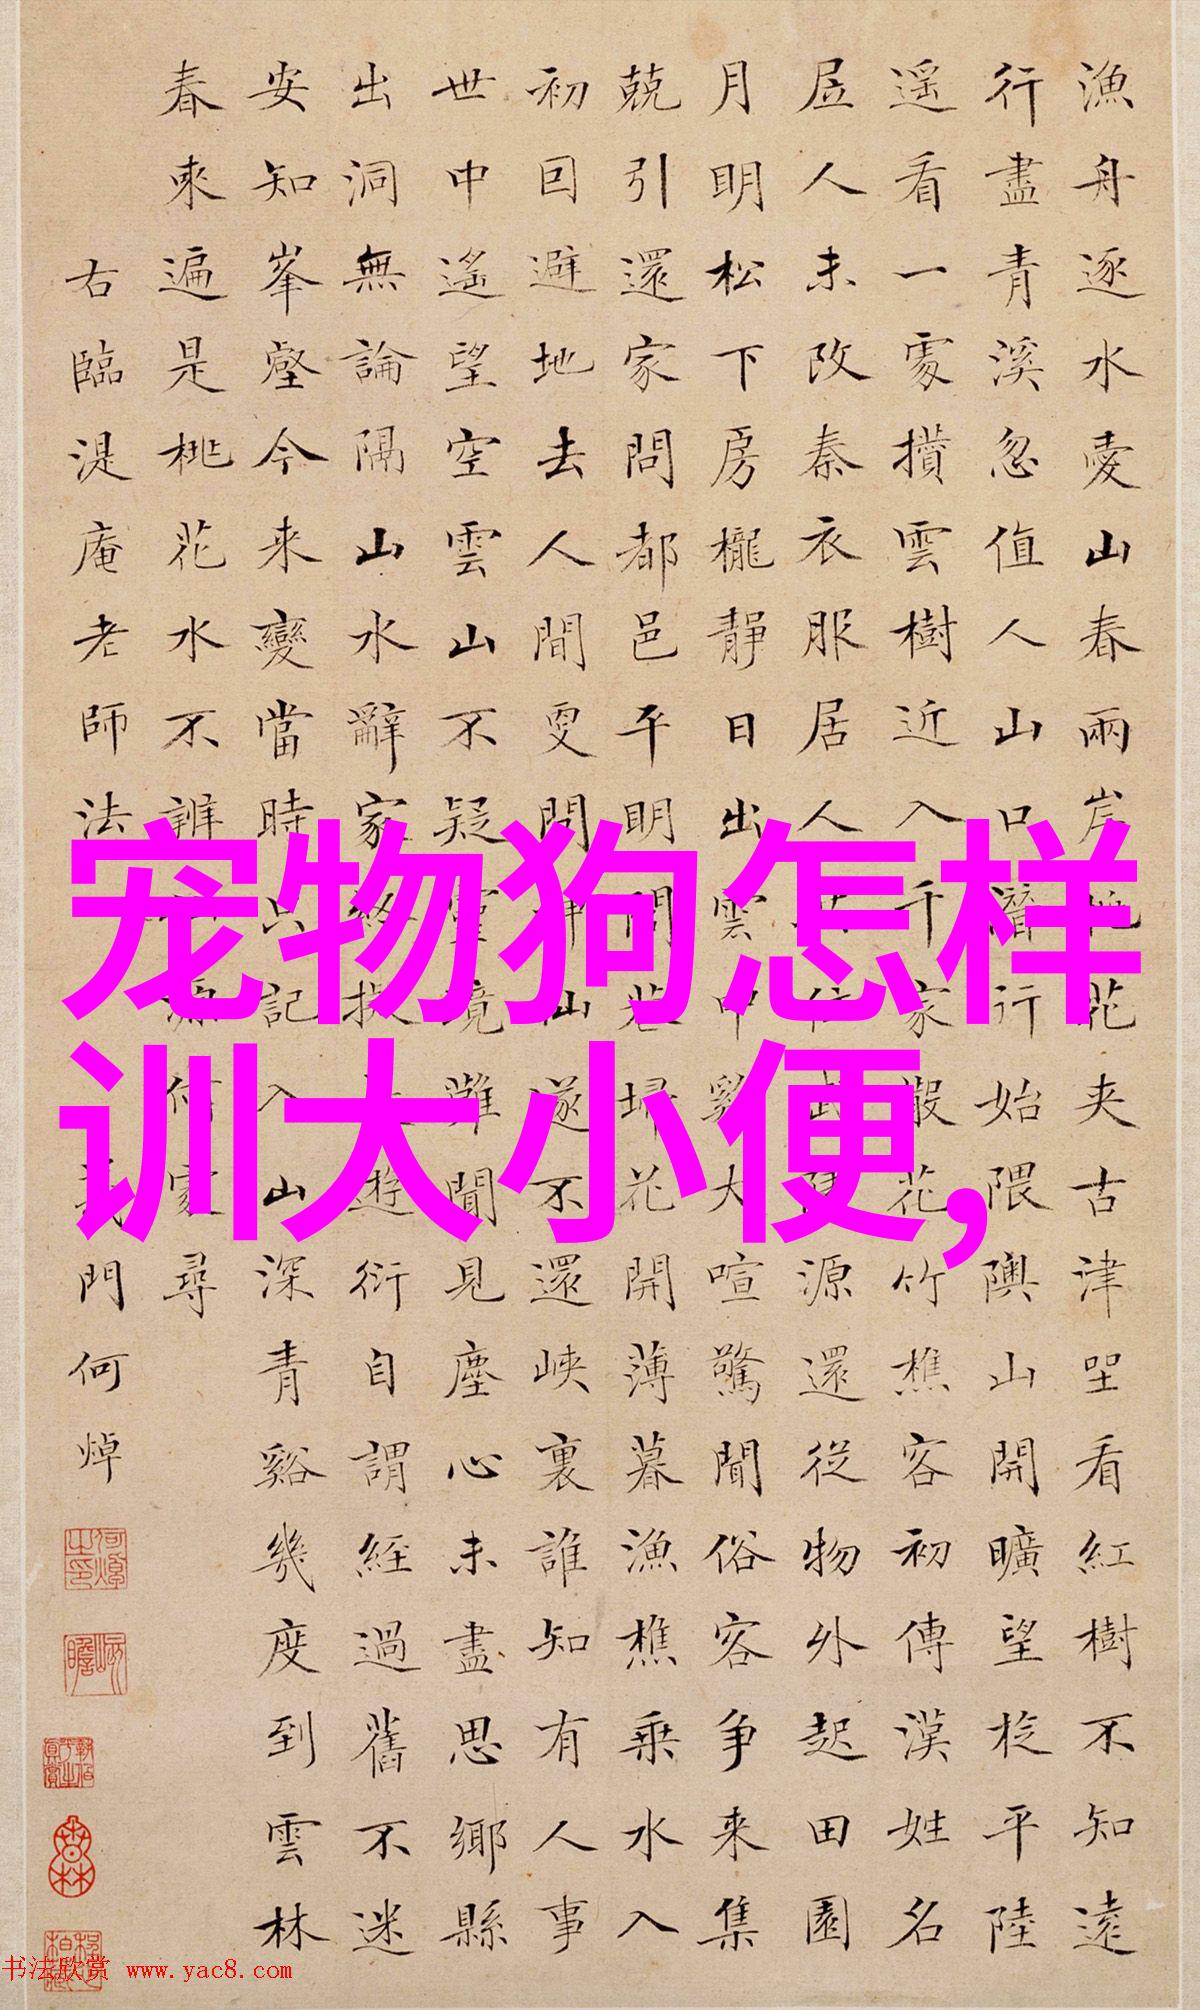 漁舟逐水愛山春兩岸桃花夾古津坐看紅樹不知遠
行盡青溪忽值人山口潛行始隈隩山開曠望旋平陸
遥看一處攢雲樹近入千家散花竹樵客初傳漢姓名
居人未改秦衣服居人共住武陵源還從物外起田園
月明松下房櫳靜日出雲中雞犬喧驚聞俗客争来集
競引還家問都邑平明閭巷掃花開薄暮漁樵乘水入
初回避地去人間更問神仙遂不還峽裏誰知有人事
世中遙望空雲山不疑靈境難聞見塵心未盡思鄉縣
出洞無論隔山水辭家終擬長遊衍自謂經過舊不迷
安知峯壑今来變當時只記入山深青谿幾度到雲林
春來遍是桃花水不辨仙源何處尋
右臨湜庵老師法義門何焯
宠物狗怎样
训大小便,
书法欣赏 www.yac8.com